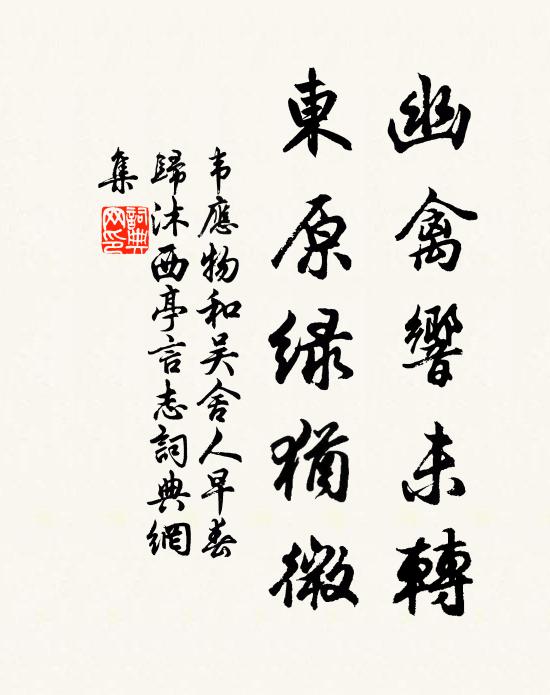 幽禽響未轉
東原緑猶微
韦應物和吴舍人早春
歸沐西亭言志詞典網
集
詞典网印